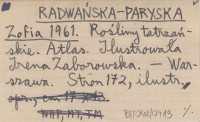 RADWAŃSKA-PARYSKA
Zofia 1961. Rośliny tatrzań-
skie. Atlas. Ilustrowała
Irena Zaborowska. — War-
szawa. Stron 172, ilustr.
opr., cm 17 x 12
WHP, KT, TM